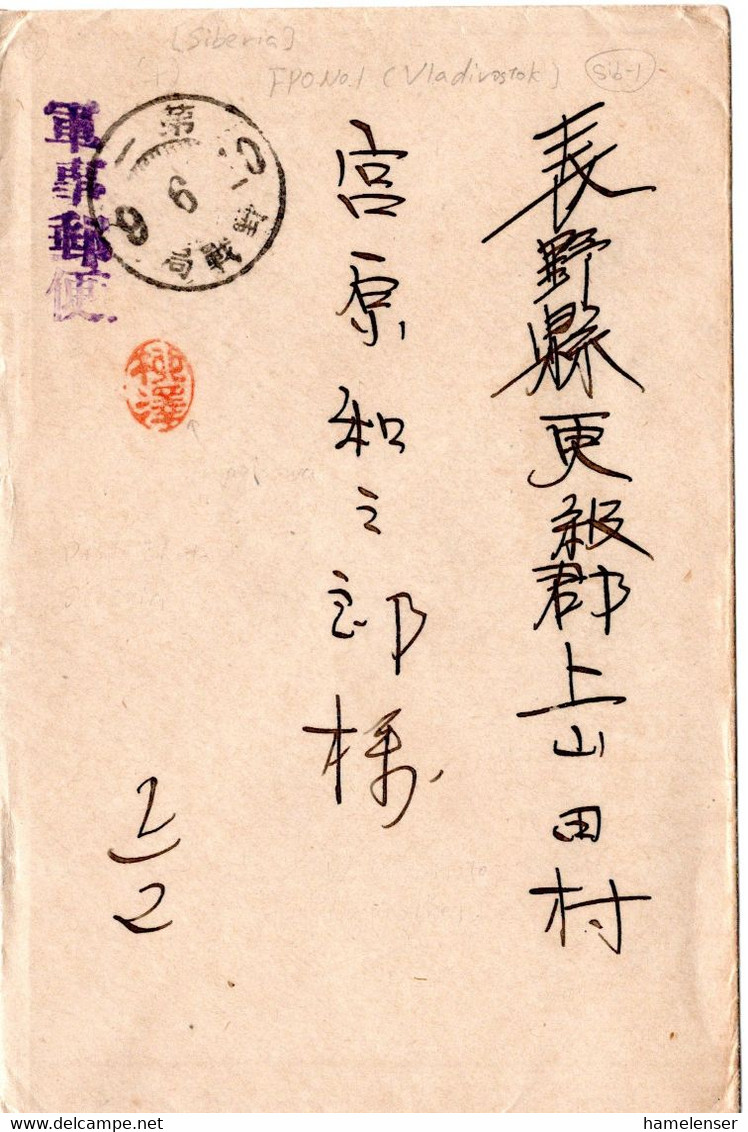 [Siberia]
FPO No.1 (Vladivostok)
Sib-1
長野縣更級郡上山田村
宮原和之郎様
軍事郵便
第一
野戰局
9
6
9
2/2
hamelenser